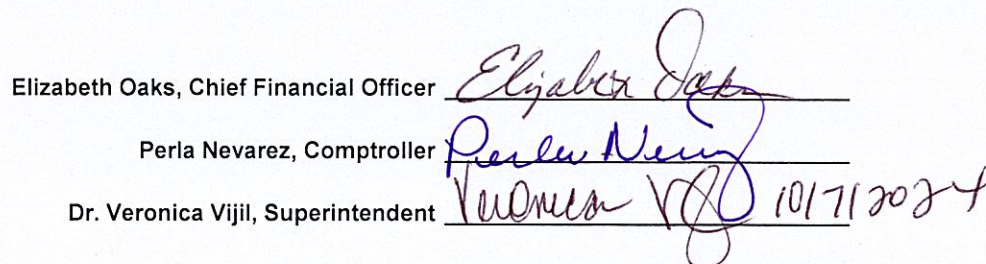 Elizabeth Oaks, Chief Financial Officer Elizabeth Oaks
Perla Nevarez, Comptroller Perla
Dr. Veronica Vijil, Superintendent Veronica V 10/7/2024